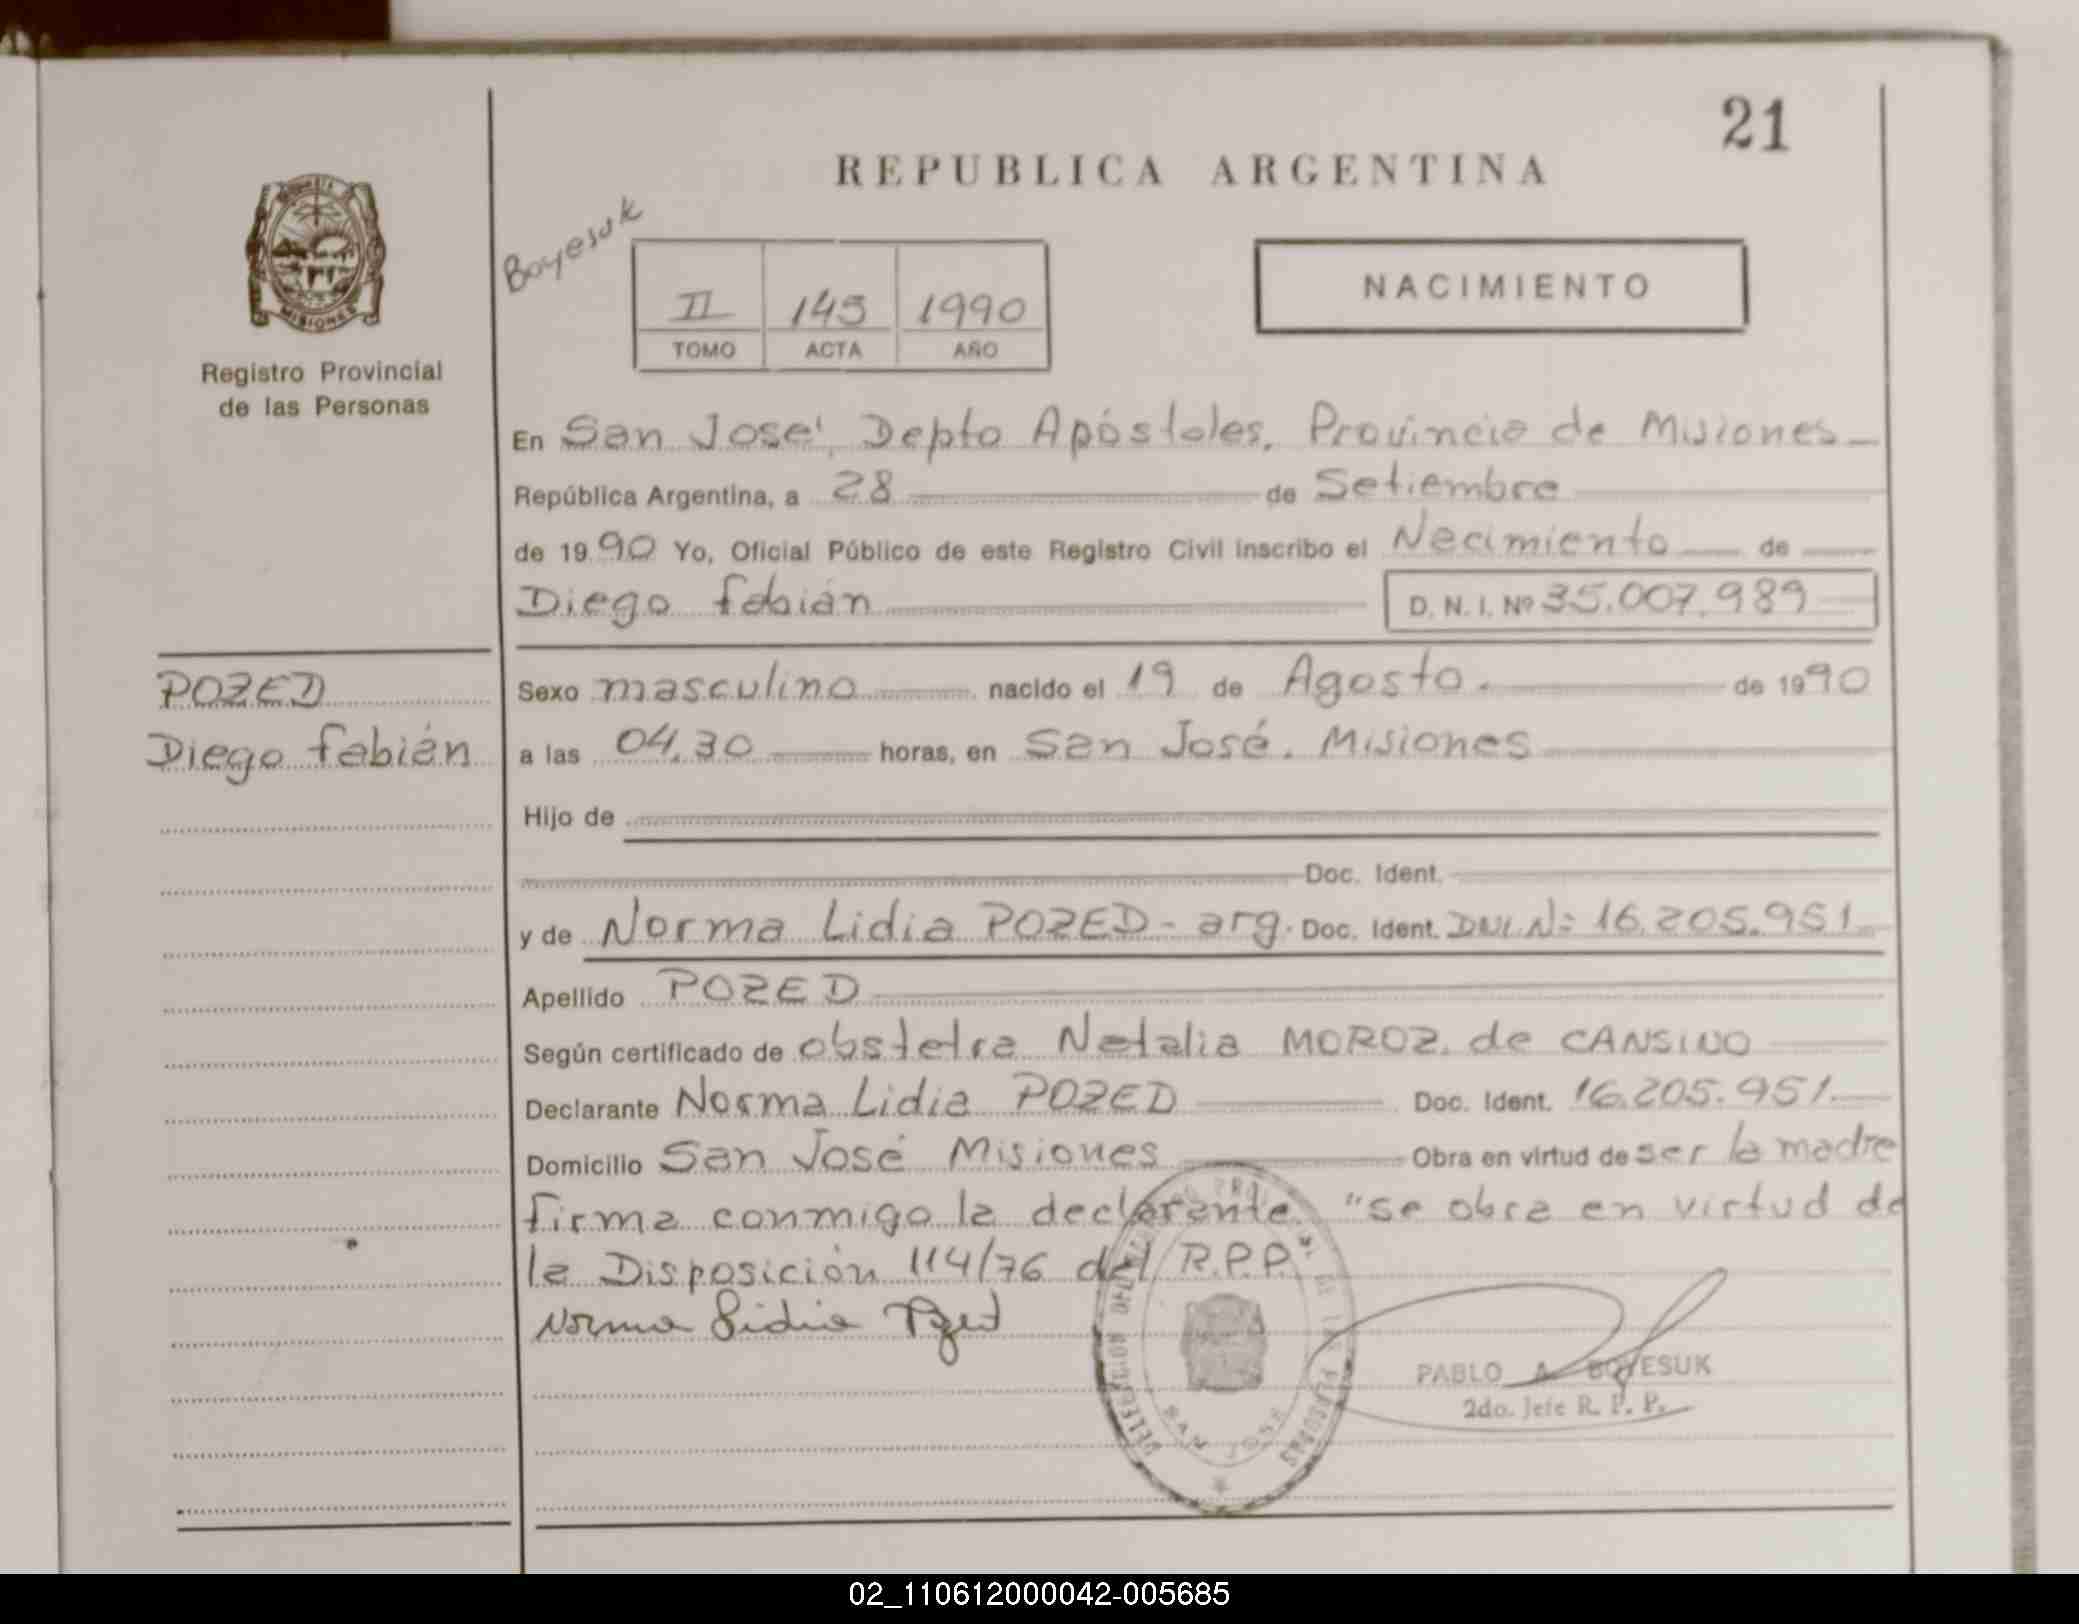 21
REPUBLICA ARGENTINA
Boyesuk
II 145 1990
TOMO ACTA AÑO
NACIMIENTO
MISIONES
Registro Provincial
de las Personas
En San José, Depto Apóstoles, Provincia de Misiones
República Argentina, a 28 de Setiembre
de 1990 Yo, Oficial Público de este Registro Civil inscribo el Nacimiento de
Diego fabián D. N. I. Nº 35.007.989
POZED
Diego fabián
Sexo masculino nacido el 19 de Agosto. de 1990
a las 04,30 horas, en San José. Misiones
Hijo de
Doc. Ident.
y de Norma Lidia POZED - arg. Doc. Ident. DNI.Nº 16.205.951.
Apellido POZED
Según certificado de obstetra Natalia MOROZ. de CANSINO
Declarante Norma Lidia POZED Doc. Ident. 16.205.951.
Domicilio San José Misiones Obra en virtud de ser la madre
firma conmigo la declarante. "se obra en virtud de
la Disposición 114/76 del R.P.P."
Norma Lidia Pozed
DELEGACION DEL REGISTRO PROVINCIAL DE LAS PERSONAS
SAN JOSE
PABLO A. BOYESUK
2do. Jefe R. P. P.
02_110612000042-005685